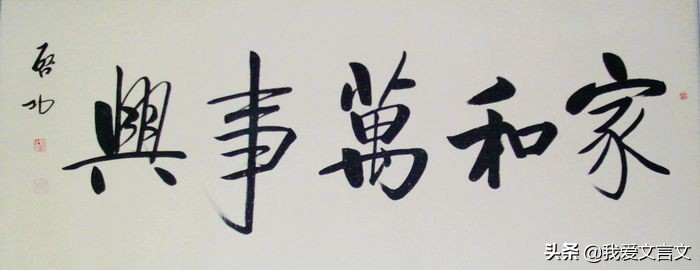 家和萬事興
啓功
头条 @我爱文言文